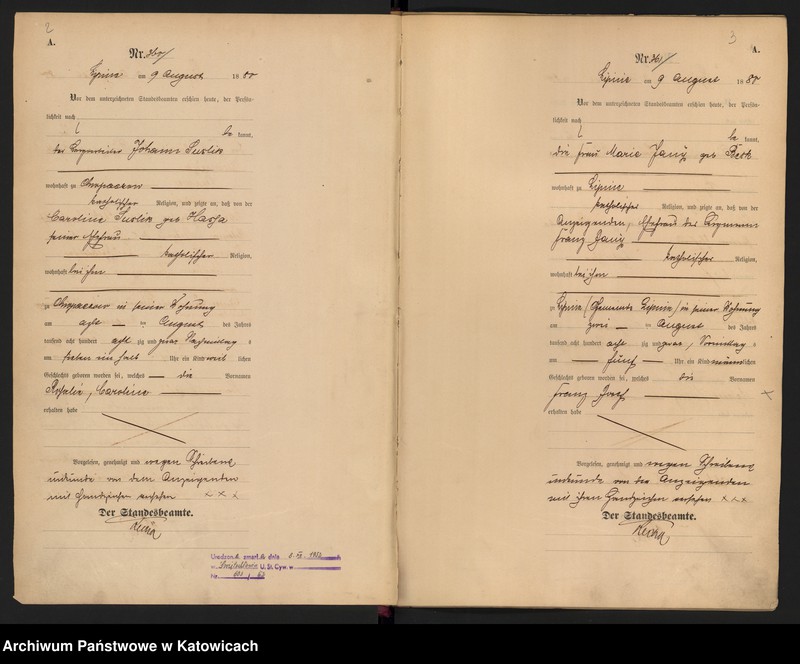 2
A.
Nr. 360
Lipine am 9 August 1880
Vor dem unterzeichneten Standesbeamten erschien heute, der Persön-
lichkeit nach
be kannt,
der Johann Suslik
wohnhaft zu Chropaczow
katholischer Religion, und zeigte an, daß von der
Caroline Suslik geb
seiner Ehefrau
katholischer Religion,
wohnhaft bei ihm
zu Chropaczow in seiner Wohnung
am acht ten August des Jahres
tausend acht hundert acht zig und zwar Nachmittag s
um sieben ein halb Uhr ein Kind weib lichen
Geschlechts geboren worden sei, welches die Vornamen
Rosalie, Caroline
erhalten habe
Vorgelesen, genehmigt und wegen Schreibens
unkunde von dem Anzeigenden
mit Handzeichen versehen x x x
Der Standesbeamte.
w. U. St. Cyw. w
Nr.
3
A.
Nr. 361
Lipine am 9 August 1880
Vor dem unterzeichneten Standesbeamten erschien heute, der Persön-
lichkeit nach
be kannt,
die Frau Marie geb
wohnhaft zu Lipine
katholischer Religion, und zeigte an, daß von der
Anzeigenden, Ehefrau des
Franz
katholischer Religion,
wohnhaft bei ihm
zu Lipine (Gemeinde Lipine) in seiner Wohnung
am zwei ten August des Jahres
tausend acht hundert acht zig und zwar, Vormittag s
um fünf Uhr ein Kind männlichen
Geschlechts geboren worden sei, welches die Vornamen
Franz Josef
erhalten habe
Vorgelesen, genehmigt und wegen Schreibens
unkunde von der Anzeigenden
mit ihren Handzeichen versehen x x x
Der Standesbeamte.
Archiwum Państwowe w Katowicach